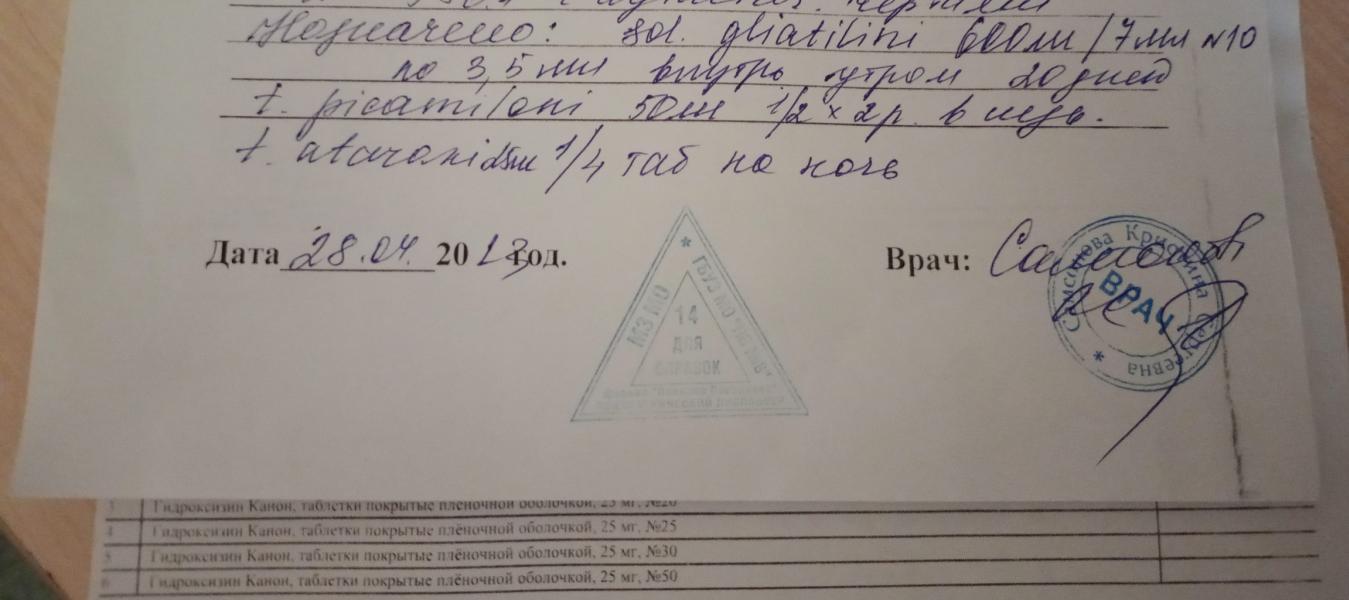 Назначено: sol. gliatilini 600мг/7мл №10
по 3,5мл внутрь утром 20 дней
t. picamiloni 50мг 1/2 х 2р. в день.
t. ataraxi 25мг 1/4 таб на ночь
Дата 28.04. 20 23 год.
Врач: Самсонова
МЗ МО
ГБУЗ МО "ПБ №8"
14
ДЛЯ
СПРАВОК
Самсонова Кристина Сергеевна
ВРАЧ
3 Гидроксизин Канон, таблетки покрытые плёночной оболочкой, 25 мг, №20
4 Гидроксизин Канон, таблетки покрытые плёночной оболочкой, 25 мг, №25
5 Гидроксизин Канон, таблетки покрытые плёночной оболочкой, 25 мг, №30
6 Гидроксизин Канон, таблетки покрытые плёночной оболочкой, 25 мг, №50